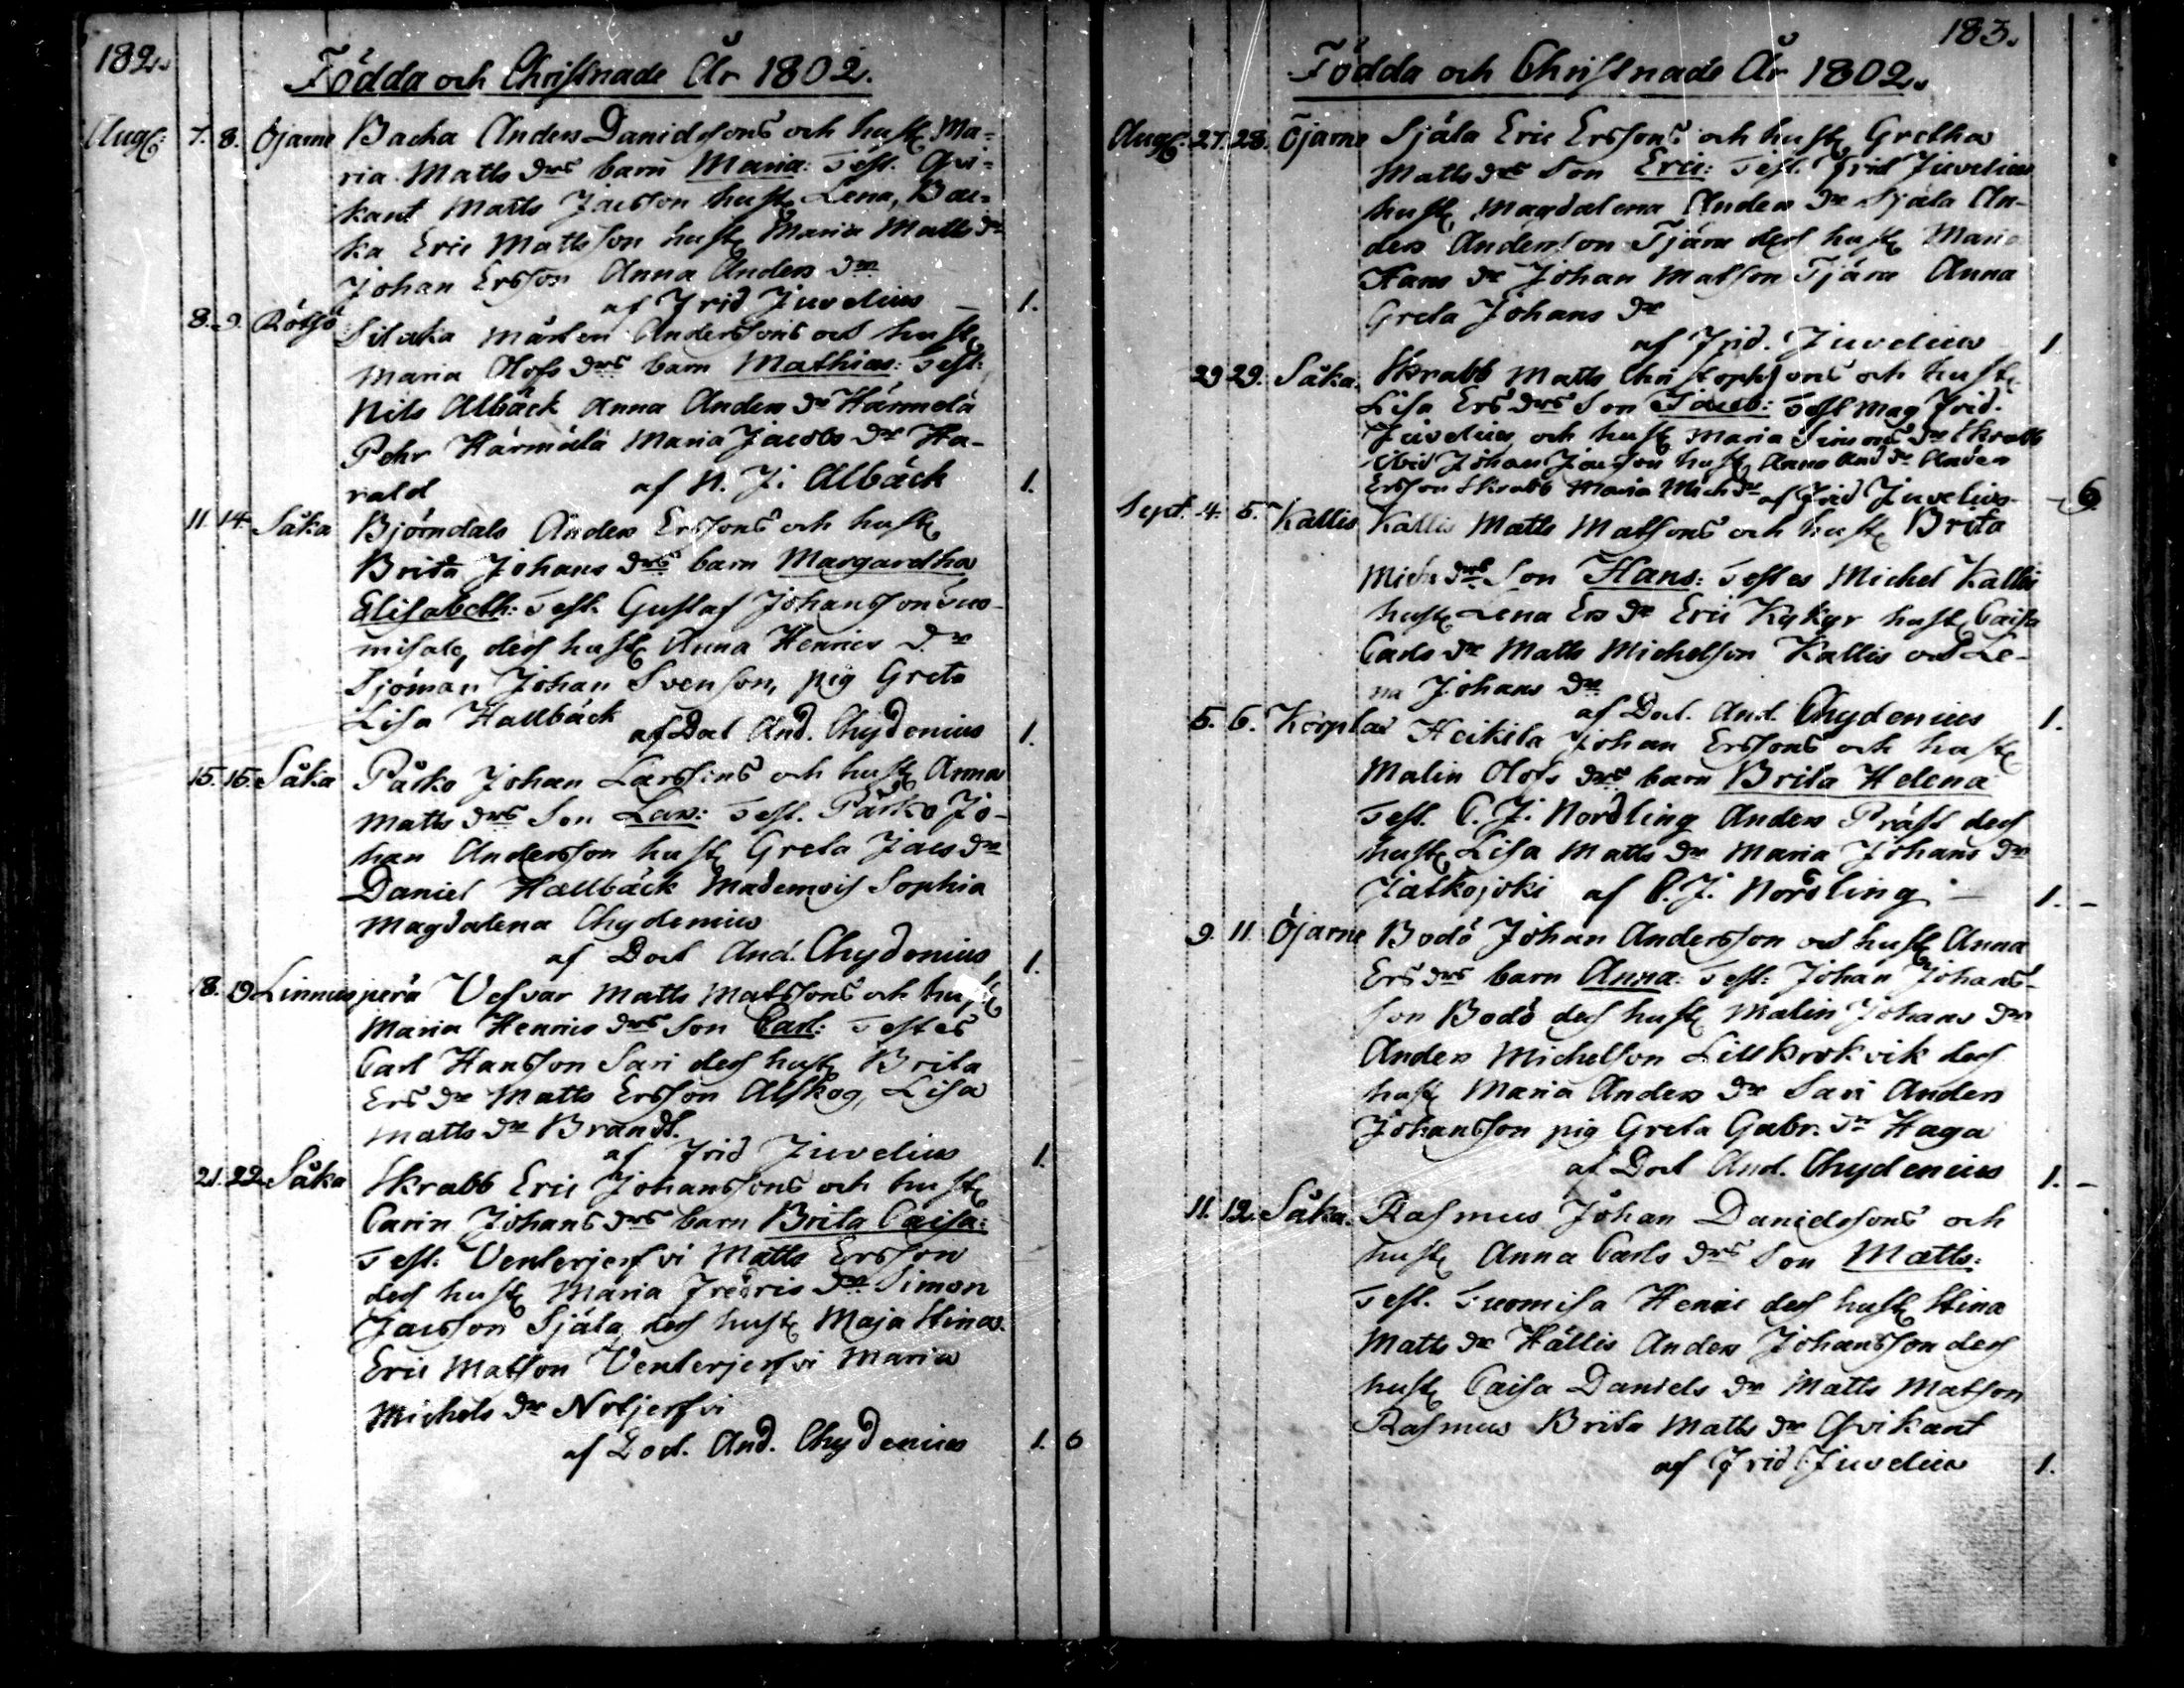 182.
Födda och Christnade År 1802.
Aug: 7. 8. Öjarne Backa Anders Danielssons och hust Ma-
ria Matts drs barn Maria: Test. Qvi-
kant Matts Jacsson hust Lena, Bac-
ka Eric Mattsson hust Maria Matts dr
Johan Ersson Anna Anders dr
af Frid Juvelius — 1.
8. 9. Rötsö Silaka Mårten Anderssons och hust
Maria Olofs drs barn Mathias: Test:
Nils Albäck Anna Anders dr Härmälä
Pehr Härmälä Maria Jacobs dr Ha-
rald af N. J. Albäck 1.
11. 14. Såka Björndals Anders Erssons och hust
Brita Johans drs barn Margaretha
Elisabeth: Test. Gustaf Johansson
des hust Anna Henrics dr
Sjöman Johan Svenson, pig Greta
Lisa Hallbäck af Doct And. Chydenius 1.
15. 15. Såka Påsko Johan Larssons och hust Anna
Matts drs Son Lars: Test. Påsko Jo-
han Andersson hust Greta Jacs dr
Daniel Hallbäck Mademois Sophia
Magdalena Chydenius
af Doct And. Chydenius 1.
18. 19 Linnusperä Vesvar Matts Matssons och hust
Maria Henrics drs Son Carl: Testes
Carl Hansson Sari des hust Brita
Ers dr Matts Ersson Alskog, Lisa
Matts dr Brandt.
af Frid Juvelius 1.
21. 22. Såka Skrabb Eric Johanssons och hust
Carin Johans drs barn Brita Caisa:
Test. Venterjerfvi Matts Ersson
des hust Maria Fredrics dr Simon
Jacsson Själa, des hust Maja Stina.
Eric Matson Venterjerfvi Maria
Michels dr Notjerfvi
af Doct. And. Chydenius 1. 6
183.
Födda och Christnade År 1802.
Aug: 27. 28. Öjarne Själa Eric Erssons och hust Gretha
Matts drs Son Eric: Test. Frid Juvelius
hust Magdalena Anders dr Själa An-
ders Anderson Tjäru des hust Maria
Hans dr Johan Matson Tjäru Anna
Greta Johans dr
af Frid. Juvelius 1
29 29. Såka. Skrabb Matts Christophsons och hust
Lisa Ers drs Son Jacob: Test Mag Frid.
Juvelius och hust Maria Simons dr Skrabb
ibid Johan Jacsson hust Anna And dr Anders
Ersson Skrabb Maria Mich dr af Frid Juvelius — 6
Sept. 4. 5. Kallis Kallis Matts Matsons och hust Brita
Mich drs Son Hans: Testes Michel Kallis
hust Lena Ers dr Eric Kykyr hust Caisa
Carls dr Matts Michelson Kallis och Le-
na Johans dr
af Doct. And. Chydenius 1.
5. 6. Korplax Heikila Johan Erssons och hust
Malin Olofs drs barn Brita Helena
Test. C. J. Nordling Anders Präst des
hust Lisa Matts dr Maria Johans dr
Jatkojoki af C. J. Nordling — 1. —
9. 11. Öjarne Bodö Johan Andersson och hust Anna
Ers drs barn Anna: Test: Johan Johans-
son Bodö des hust Malin Johans dr
Anders Michelson Lillkrokvik des
hust Maria Anders dr Sari Anders
Johansson pig Greta Gabr. dr Haga
af Doct And. Chydenius 1. —
11. 12. Såka. Rasmus Johan Danielssons och
hust Anna Carls drs Son Matts:
Test. Tuomisa Henric des hust Stina
Matts dr Hällis Anders Johansson des
hust Caisa Daniels dr Matts Matson
Rasmus Brita Matts dr Qvikant
af Frid Juvelius 1.